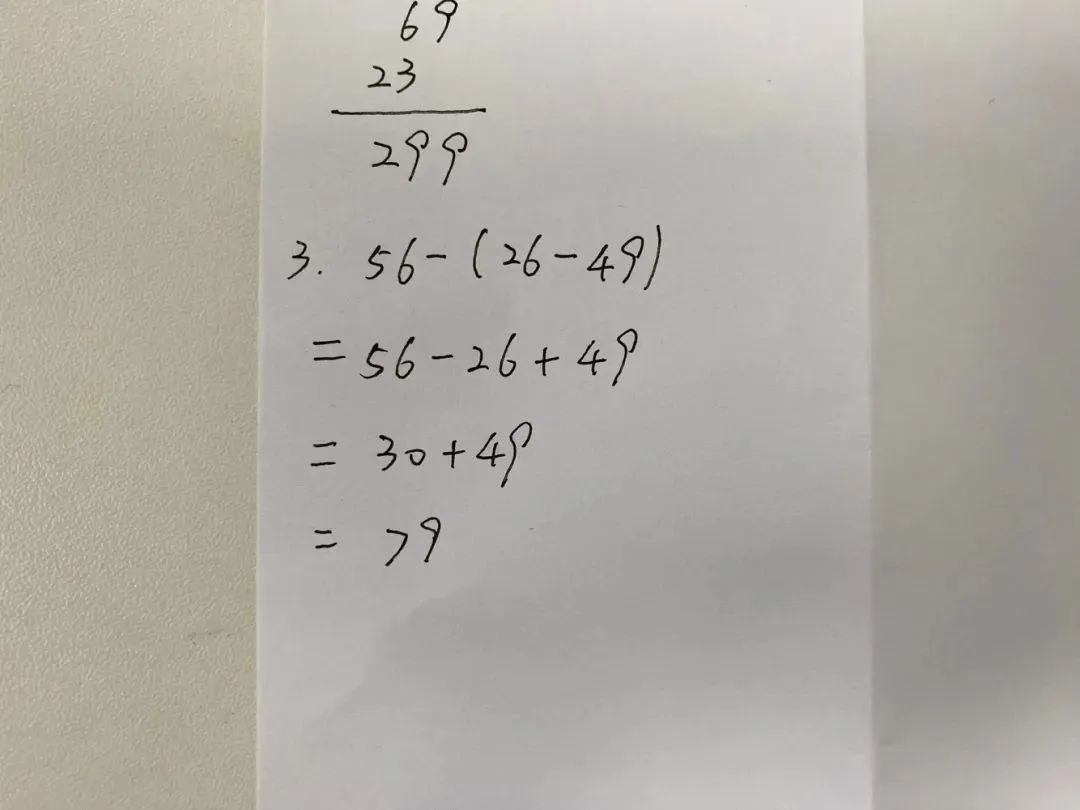 69
23
299
3. 56-(26-49)
=56-26+49
= 30+49
= 79